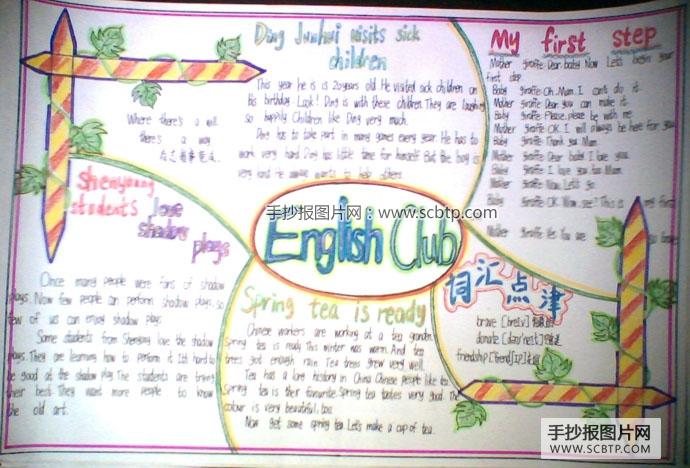 Where there's a will
there's a way
有志者事竟成
Ding Junhui visits sick
children
This year he is is 20 years old. He visited sick children on
his birthday. Look! Ding is with these children. They are laughing
so happily. Children like Ding very much.
Ding has to take part in many games every year. He has to
work very hard. Ding has little time for himself. But the boy is
very kind. He wants to help others
My first step
Mother giraffe: Dear baby. Now. Let's begin your
first step.
Baby giraffe: Oh, Mum. I can't do it.
Mother giraffe: Dear you can make it.
Baby giraffe: Please, please be with me
Mother giraffe: OK. I will always be here for you.
Baby giraffe: Thank you Mum.
Mother giraffe: Dear baby. I love you.
Baby giraffe: I love you too Mum.
Mother giraffe: Now, Let's go.
Baby giraffe: OK. Mum. See? This is my first
Mother giraffe: Yes. You are so
Shenyang
students love
shadow
plays
Once many people were fans of shadow
plays. Now few people can perform shadow plays, so
few of us can enjoy shadow plays
Some students from Shenyang love the shadow
plays. They are learning how to perform it. It's hard to
be good at the shadow play. The students are trying
their best. They want more people to know
the old art.
手抄报图片网：www.scbtp.com
English Club
Spring tea is ready
Chinese workers are working at a tea grarden.
spring tea is ready. This winter was warm. And tea
trees got enough rain. Tea trees grew very well.
Tea has a long history in China. Chinese people like tea.
Spring tea is their favourite. Spring tea tastes very good. The
colour is very beautiful, too.
Now get some spring tea. Let's make a cup of tea.
词汇点津
brave [breiv] 勇敢的
donate
friendship
手抄报图片网
WWW.SCBTP.COM